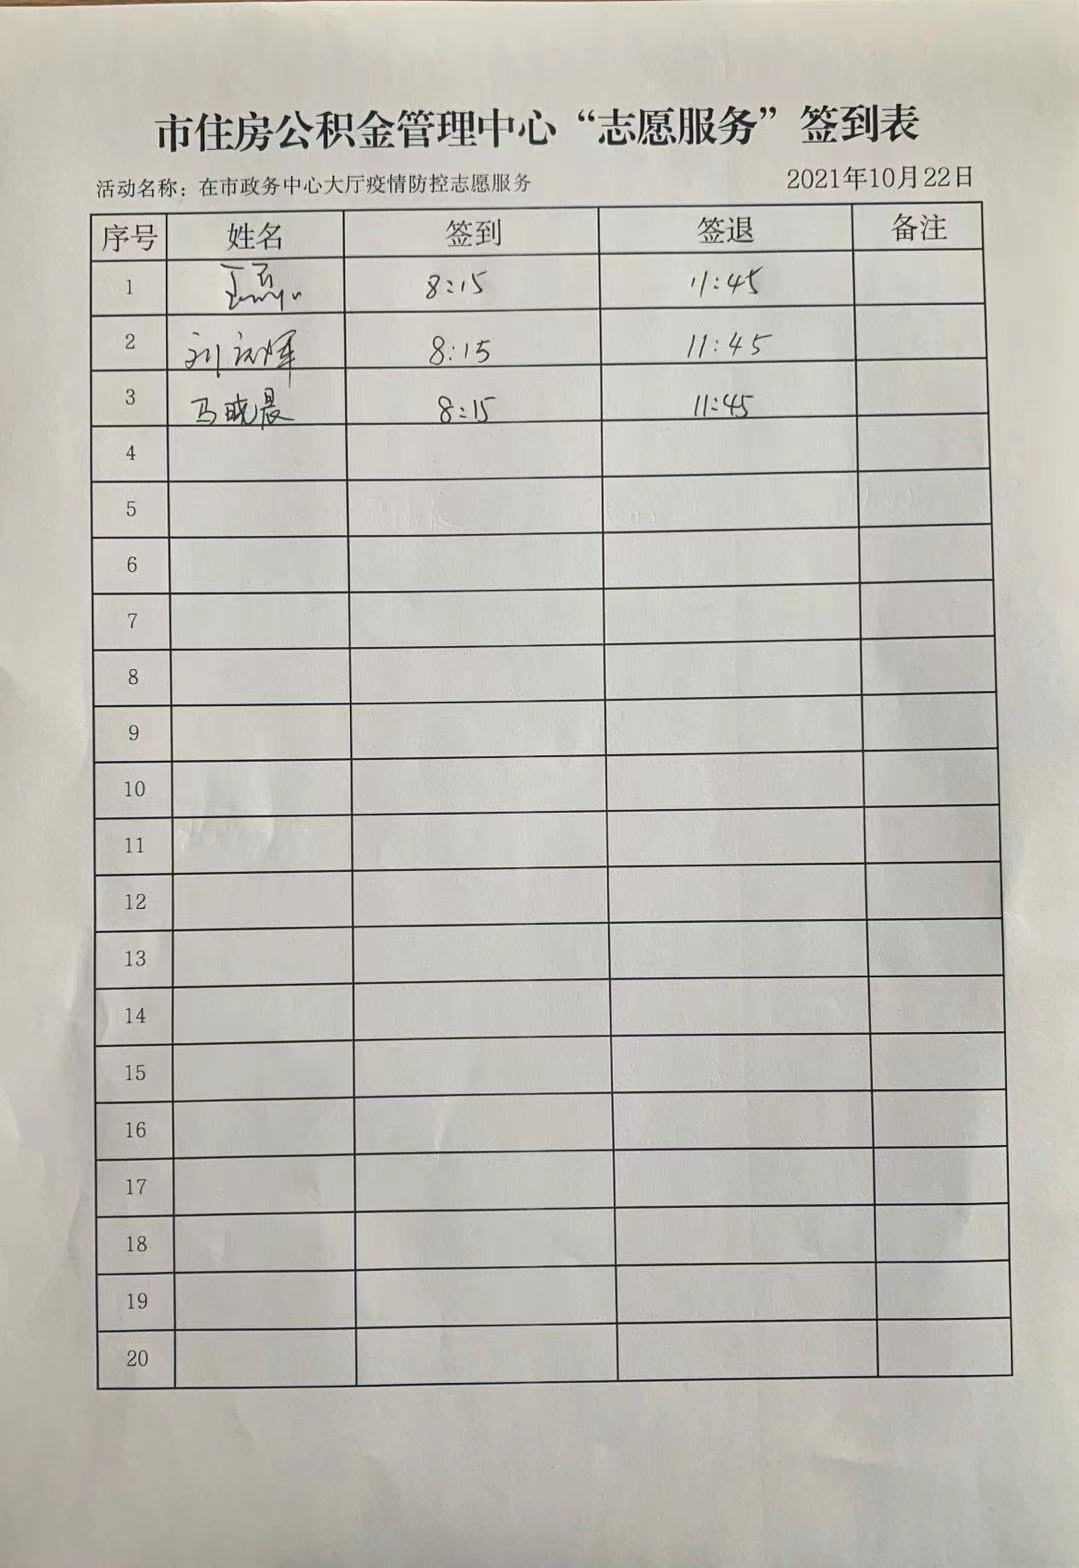 市住房公积金管理中心“志愿服务”签到表
活动名称：在市政务中心大厅疫情防控志愿服务 2021年10月22日
序号 姓名 签到 签退 备注
1 8:15 11:45
2 刘 辉 8:15 11:45
3 马晓晨 8:15 11:45
4
5
6
7
8
9
10
11
12
13
14
15
16
17
18
19
20